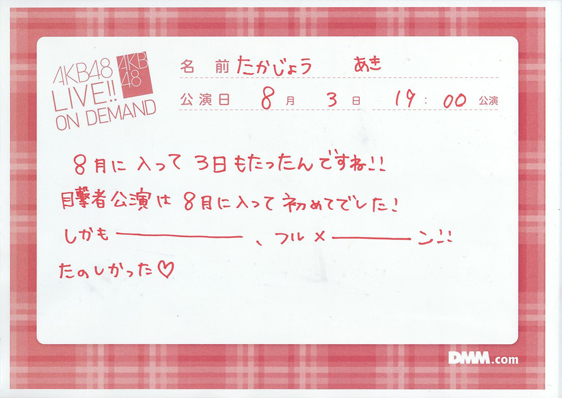 AKB48
LIVE!!
ON DEMAND
AKB
48
名 前 たかじょう あき
公演日 8月 3日 19:00 公演
8月に入って3日もたったんですね!!
目撃者公演は8月に入って初めてでした!
しかも――――――、フルメ――――ン!!
たのしかった♡
DMM.com